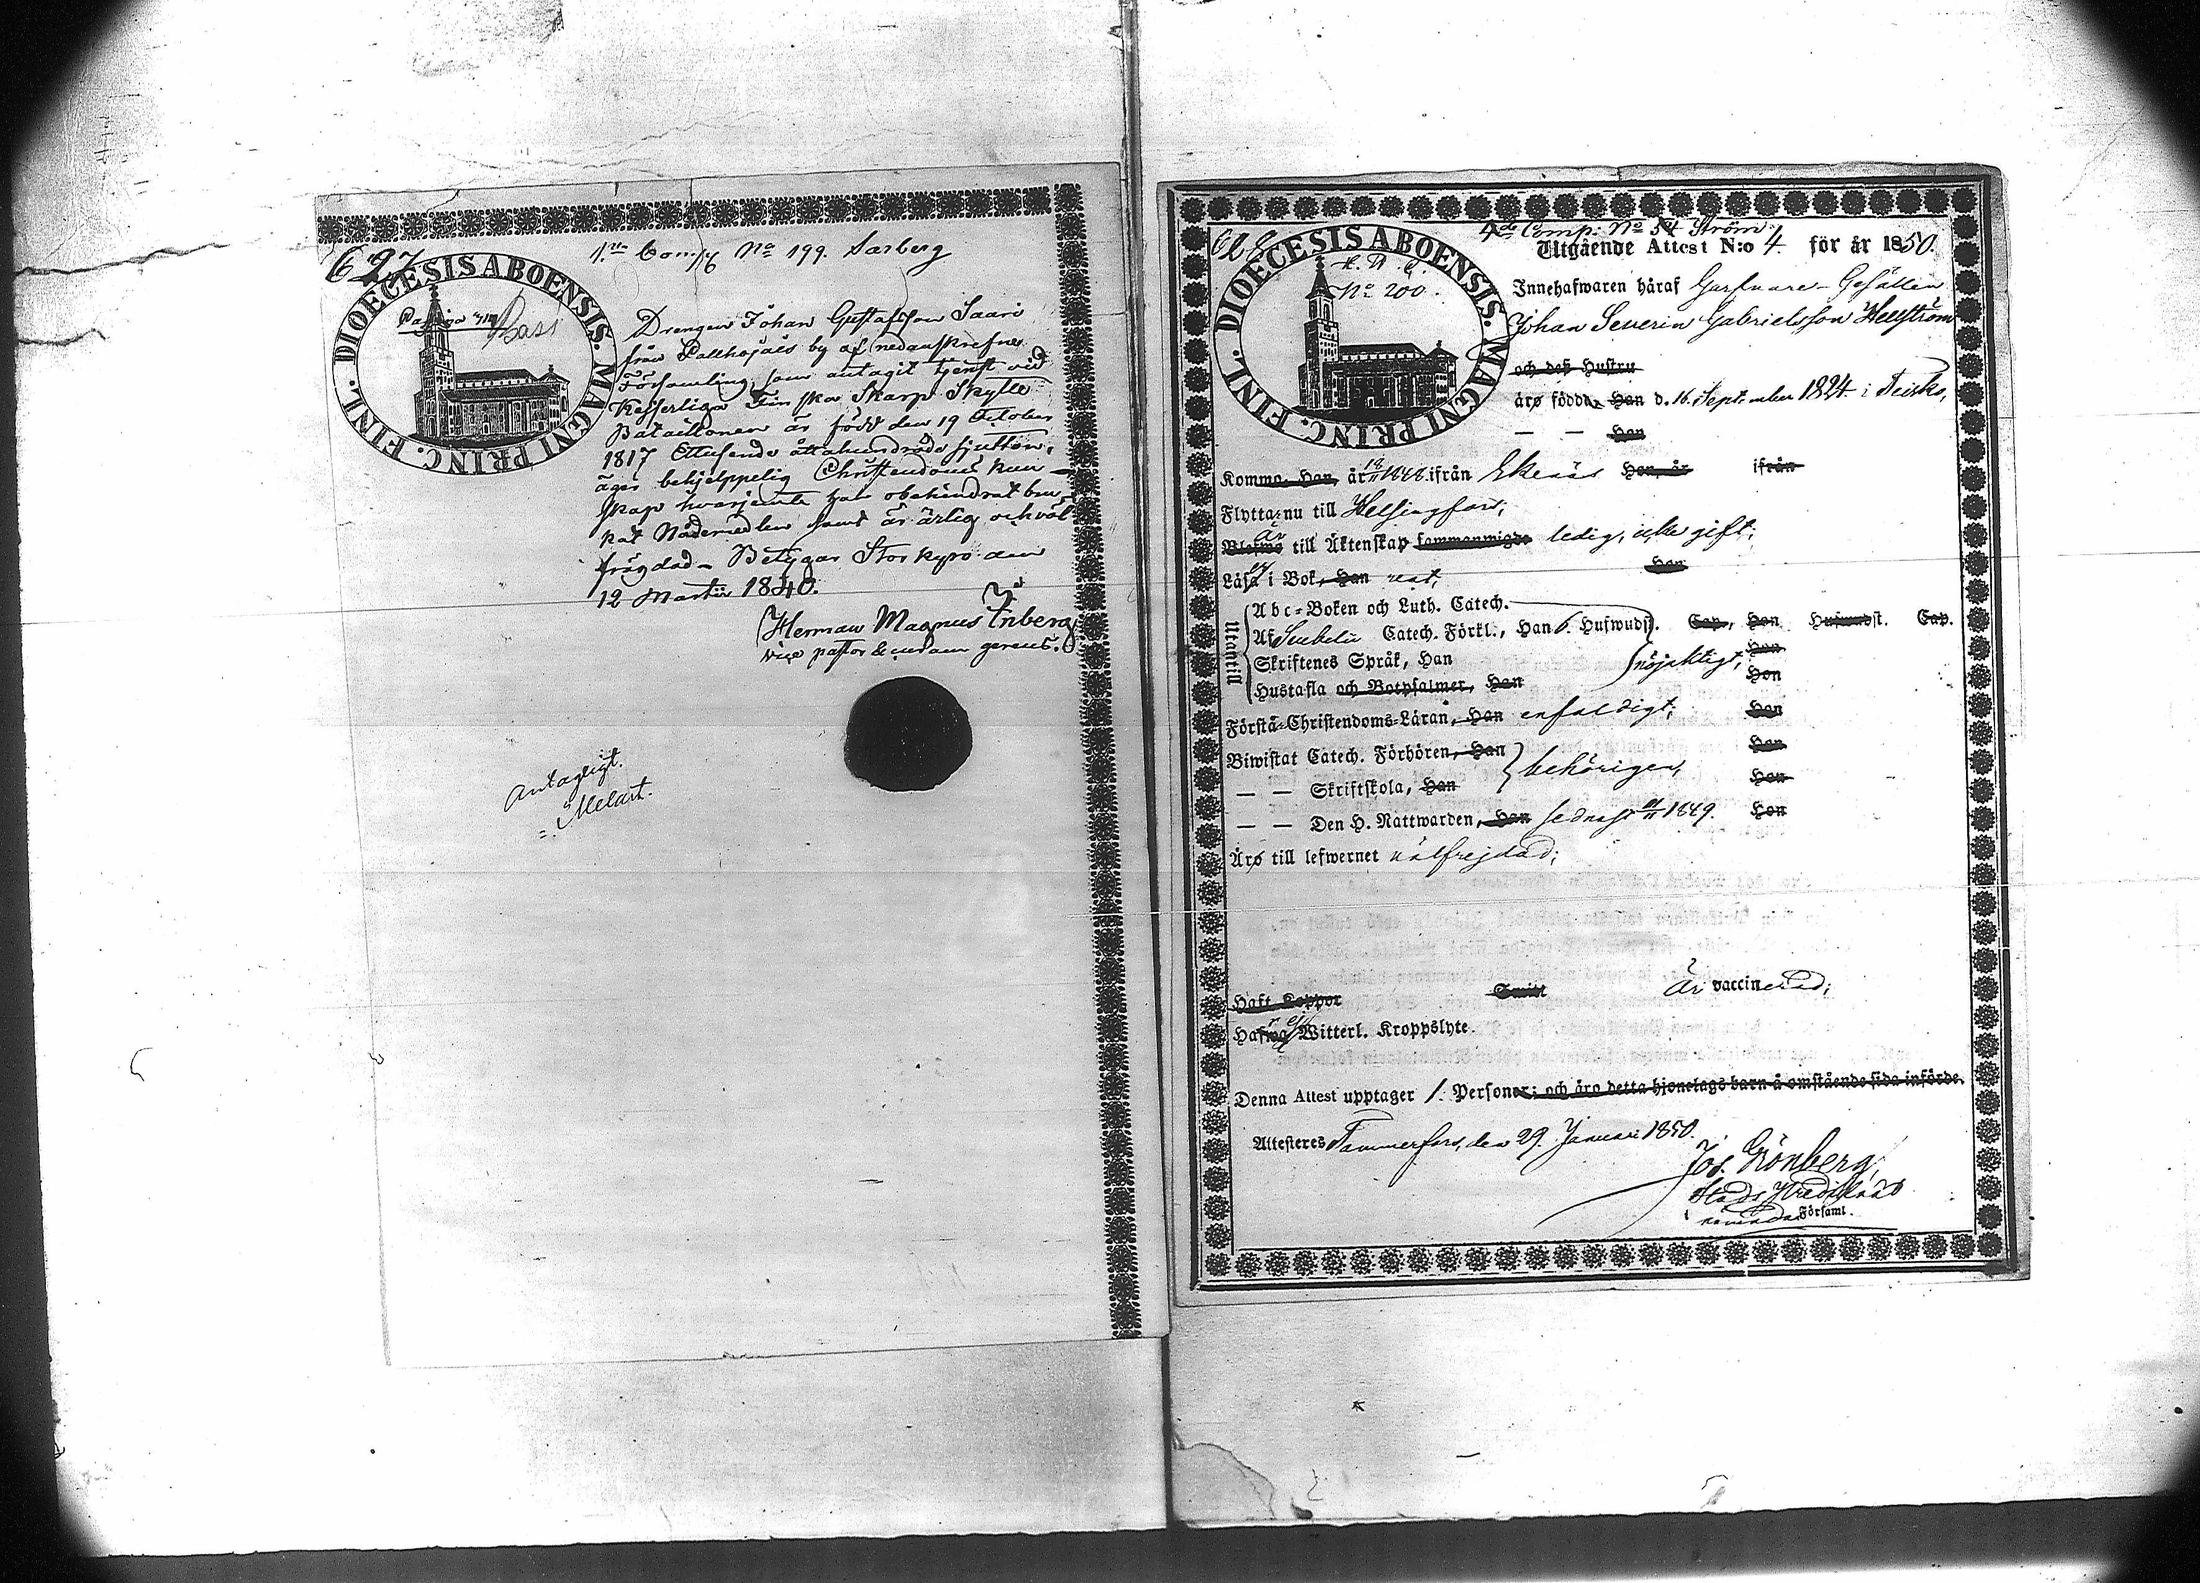 627
1:sta Comp. No 199. Sarberg
DIOECESIS ABOENSIS. MAGNI PRINC. FINL.
Bass
Drengen Johan Gustafsson Saari
från Pallhojais by af nedanskrefne
Församling, som antagit tjenst vid
Kejserliga Finska Skarp Skytte
Bataillonen är född den 19 October
1817 Ettusende åttahundrade sjutton,
äger behjelppelig Christendoms kun-
skap hvarjemte han obehindrat bru-
kat Nådemedlen samt är ärlig och väl
frägdad - Betygar Storkyro den
12 Martii 1840.
Herman Magnus Inberg
vice pastor & curam gerens.
Antagligt.
Melart.
628
4de Comp: No 54 Ström.
DIOECESIS ABOENSIS. MAGNI PRINC. FINL.
No 200.
Utgående Attest N:o 4. för år 1850.
Innehafwaren häraf Garfvare-Gesällen
Johan Severin Gabrielsson Hellström
och deß Hustru
äro födda, Han d. 16. September 1824. i
Hon
Komma, Han, år 1848. ifrån Ekenäs Hon, år ifrån
Flytta nu till Helsingfors,
Är till Äktenskap sammanwigde ledig, icke gift;
Läsa i Bok, Han rent, Hon
Utantill
Abc-Boken och Luth. Catech.
Af Catech. Förkl., Han 6. Hufwudst. Cap., Hon Hufwudst. Cap.
Skriftenes Språk, Han nöjaktigt, Hon
Hustafla och Botpsalmer, Han Hon
Förstå Christendoms-Läran, Han enfaldigt; Hon
Biwistat Catech. Förhören, Han behörigen, Hon
— — Skriftskola, Han Hon
— — Den H. Nattwarden, Han sednast 1849. Hon
Äro till lefwernet välfrejdad;
Haft Koppor Smitt Är vaccinerad;
Hafwa ej Witterl. Kroppslyte.
Denna Attest upptager 1. Personer; och äro detta hjonelags barn å omstående sida införde.
Attesteres Tammerfors, den 29. Januari 1850.
Jos. Grönberg,
Stads Predikant
i nämnda Församl.